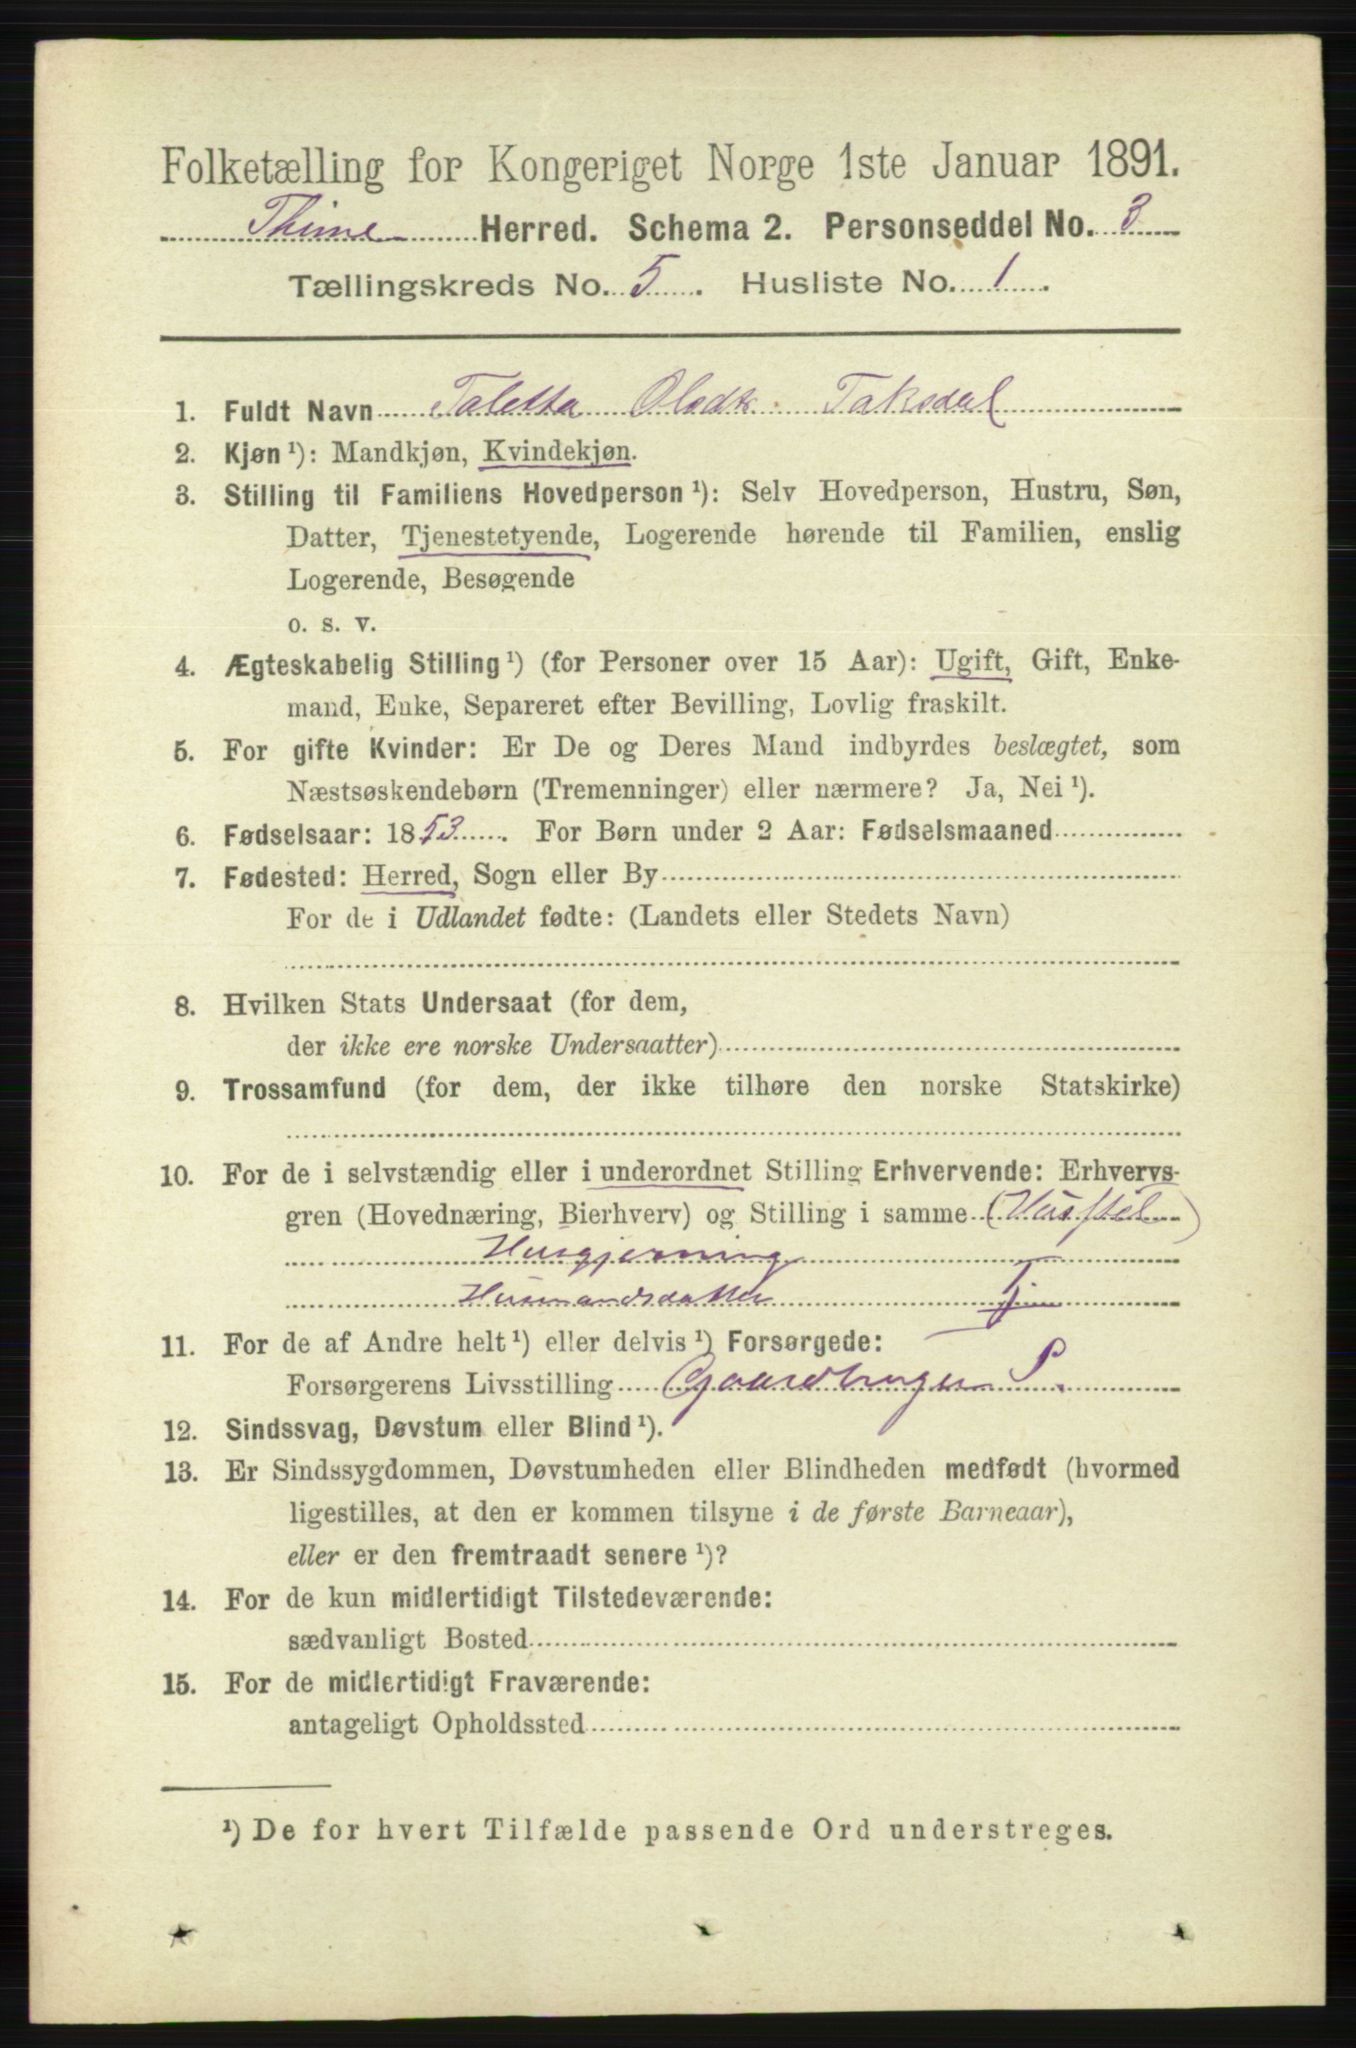 Folketælling for Kongeriget Norge 1ste Januar 1891.
Thime Herred. Schema 2. Personseddel No. 3
Tællingskreds No. 5. Husliste No. 1.
1. Fuldt Navn Taletta Olsdtr. Taksdal
2. Kjøn ¹): Mandkjøn, Kvindekjøn.
3. Stilling til Familiens Hovedperson ¹): Selv Hovedperson, Hustru, Søn,
Datter, Tjenestetyende, Logerende hørende til Familien, enslig
Logerende, Besøgende
o. s. v.
4. Ægteskabelig Stilling ¹) (for Personer over 15 Aar): Ugift, Gift, Enke-
mand, Enke, Separeret efter Bevilling, Lovlig fraskilt.
5. For gifte Kvinder: Er De og Deres Mand indbyrdes beslægtet, som
Næstsøskendebørn (Tremenninger) eller nærmere? Ja, Nei ¹).
6. Fødselsaar: 1853. For Børn under 2 Aar: Fødselsmaaned
7. Fødested: Herred, Sogn eller By
For de i Udlandet fødte: (Landets eller Stedets Navn)
8. Hvilken Stats Undersaat (for dem,
der ikke ere norske Undersaatter)
9. Trossamfund (for dem, der ikke tilhøre den norske Statskirke)
10. For de i selvstændig eller i underordnet Stilling Erhvervende: Erhvervs-
gren (Hovednæring, Bierhverv) og Stilling i samme
Husgjerning
Husmandsdatter
11. For de af Andre helt ¹) eller delvis ¹) Forsørgede:
Forsørgerens Livsstilling Gaardbruger S.
12. Sindssvag, Døvstum eller Blind ¹).
13. Er Sindssygdommen, Døvstumheden eller Blindheden medfødt (hvormed
ligestilles, at den er kommen tilsyne i de første Barneaar),
eller er den fremtraadt senere ¹)?
14. For de kun midlertidigt Tilstedeværende:
sædvanligt Bosted
15. For de midlertidigt Fraværende:
antageligt Opholdssted
¹) De for hvert Tilfælde passende Ord understreges.